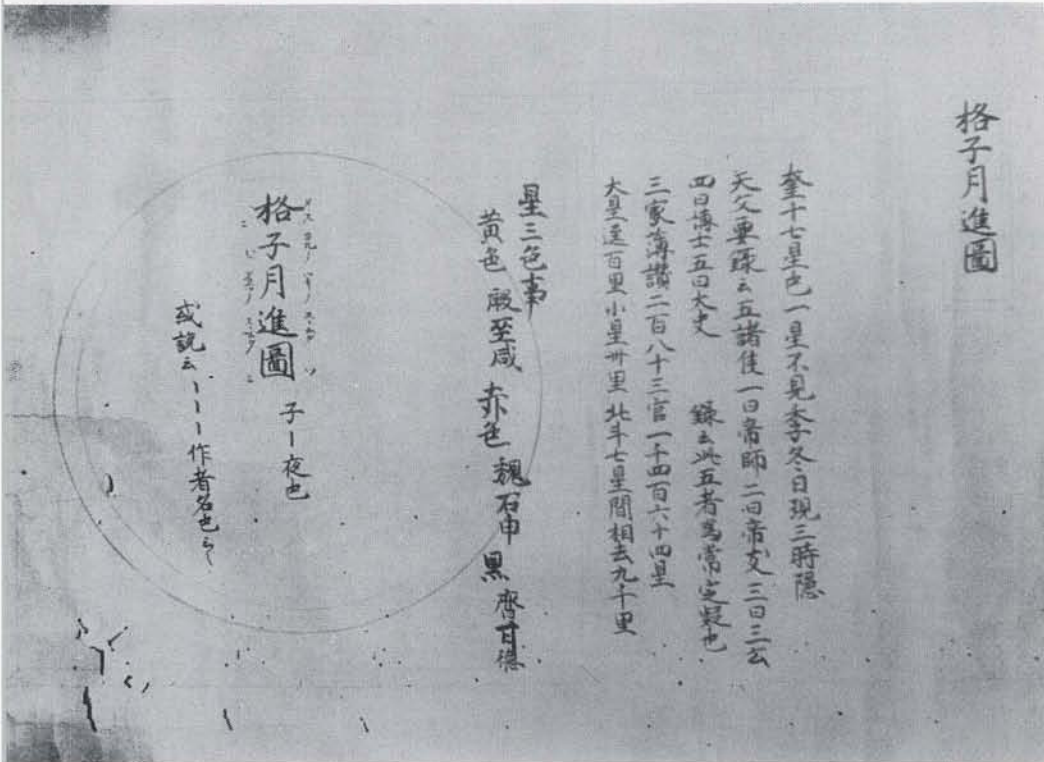 格子月進圖
奎十七星也一星不見季冬日現三時隠
天文要録云五諸侯一曰帝師二曰帝友三曰三公
四曰博士五曰太史 録云此五者為常定疑也
三家簿讃二百八十三官一千四百六十四星
大星逕百里小星卅里北斗七星間相去九千里
星三色事
黄色 殷巫咸 赤色 魏石申 黒 齊甘德
格子月進圖 子ー夜也
或説云ヽヽヽ作者名也云〻